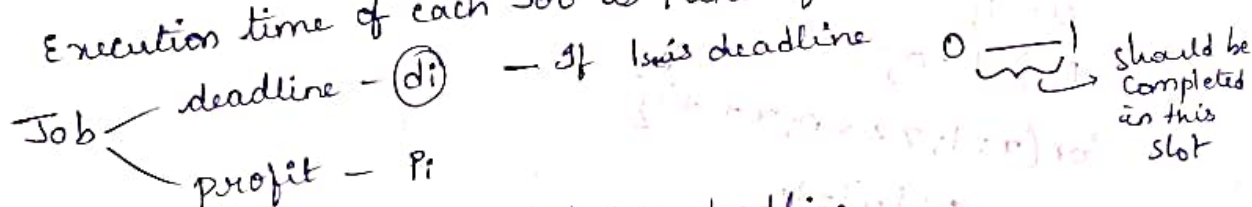 Execution time of each Job
deadline - di - If 1 is deadline 0 — 1 should be
completed
in this
slot
Job
profit - Pi
deadline